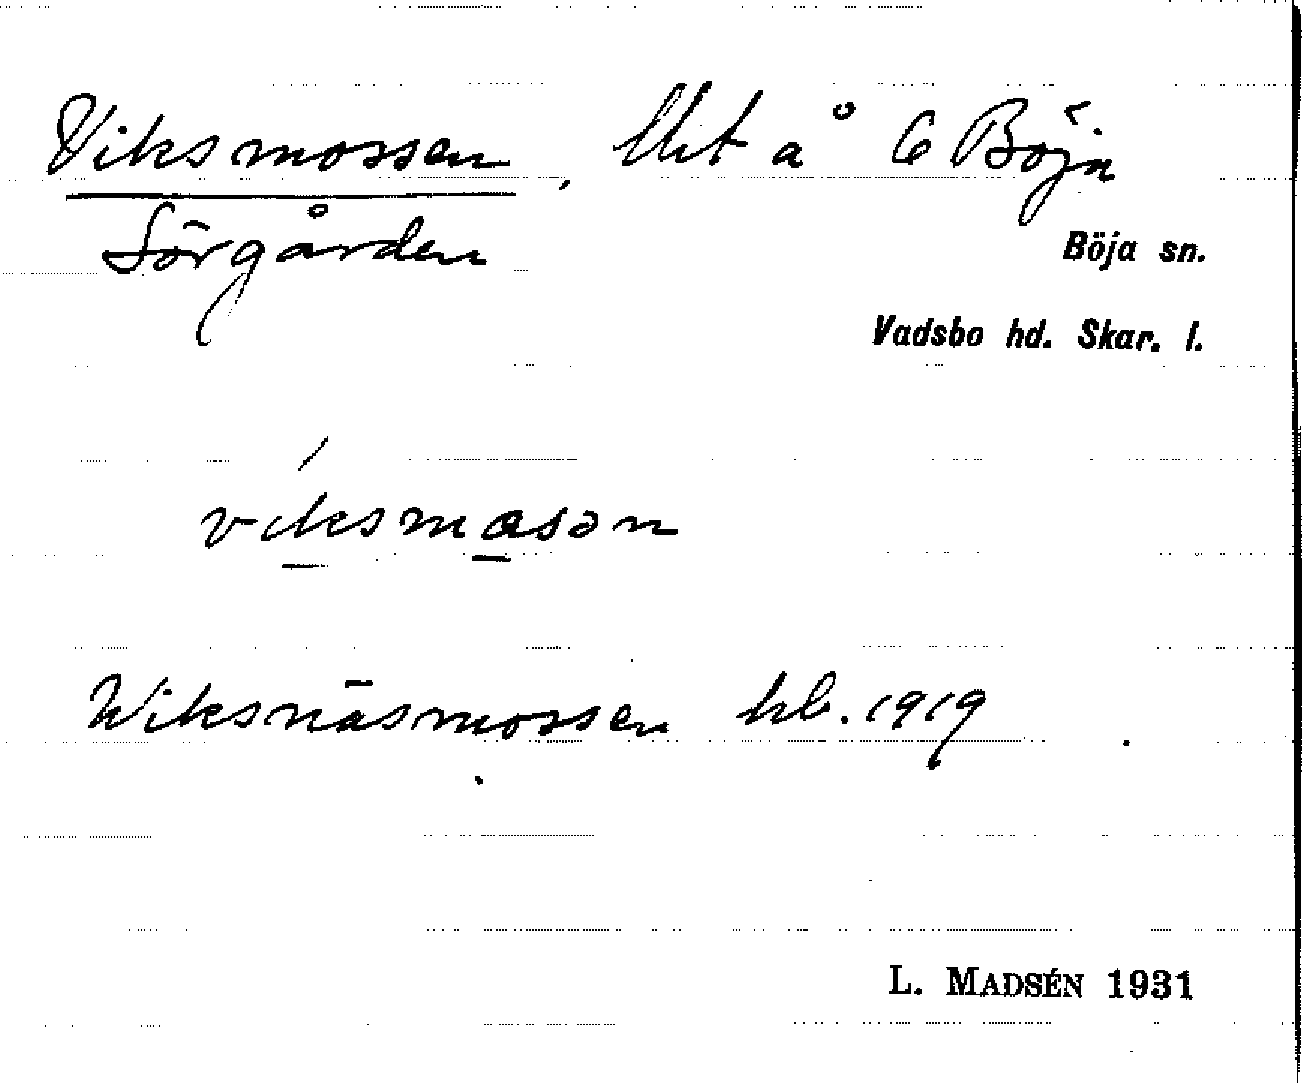 Viksmossen, Utm å 6 Böja
Sörgården
Böja sn.
Vadsbo hd. Skar. l.
viksmasən
Wiksnäsmossen hb. 1919
L. MADSÉN 1931